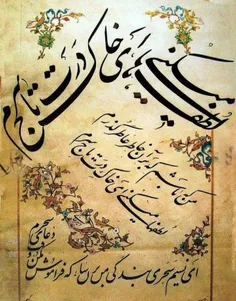 لطفها میکنی ای خاک درت تاج سرم
من که باشم که بر آن خاطر عاطر گذرم
لطفها میکنی ای خاک درت تاج سرم
ای نسیم سحری بندگی من برسان که فراموش مکن وقت
دعای سحرم